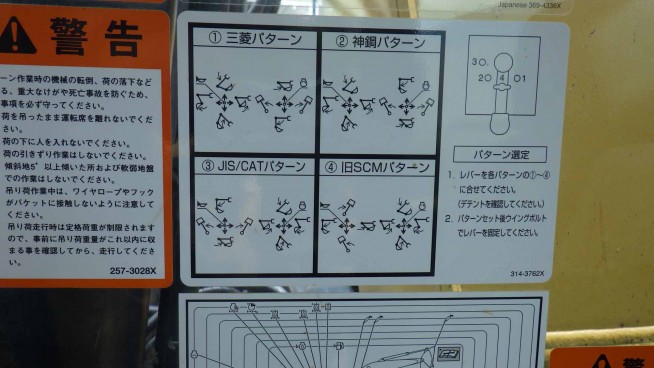 Japanese 369-4336X
警告
ーン作業時の機械の転倒、荷の落下など
る、重大なけがや死亡事故を防ぐため、
事項を必ず守ってください。
荷を吊ったまま運転席を離れないでくだ
さい。
荷の下に人を入れないでください。
荷の引きずり作業はしないでください。
傾斜地5°以上傾いた所および軟弱地盤
での作業はしないでください。
吊り荷作業中は、ワイヤロープやフック
がバケットに接触しないように注意して
ください。
吊り荷走行時は定格荷重が制限されます
ので、事前に吊り荷重量がこれ以内に収
まる事を確認してから、走行してくださ
い。
257-3028X
① 三菱パターン
② 神鋼パターン
③ JIS/CATパターン
④ 旧SCMパターン
3
2
4
1
パターン選定
1. レバーを各パターンの①〜④
に合せてください。
(デテントを確認してください。)
2. パターンセット後ウイングボルト
でレバーを固定してください。
314-3762X
警